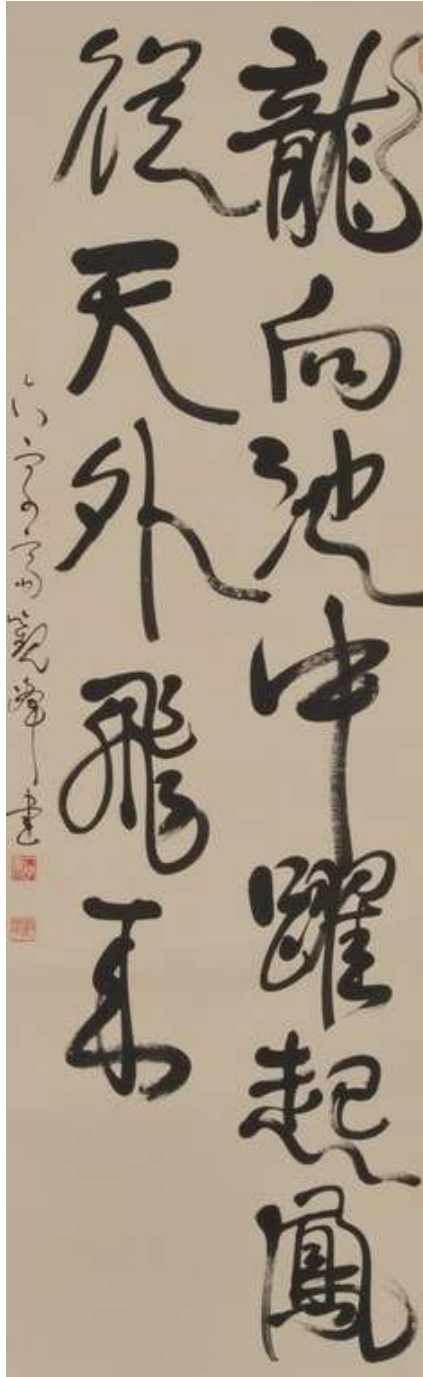 龍向池中躍起鳳
從天外飛來
觀峰書